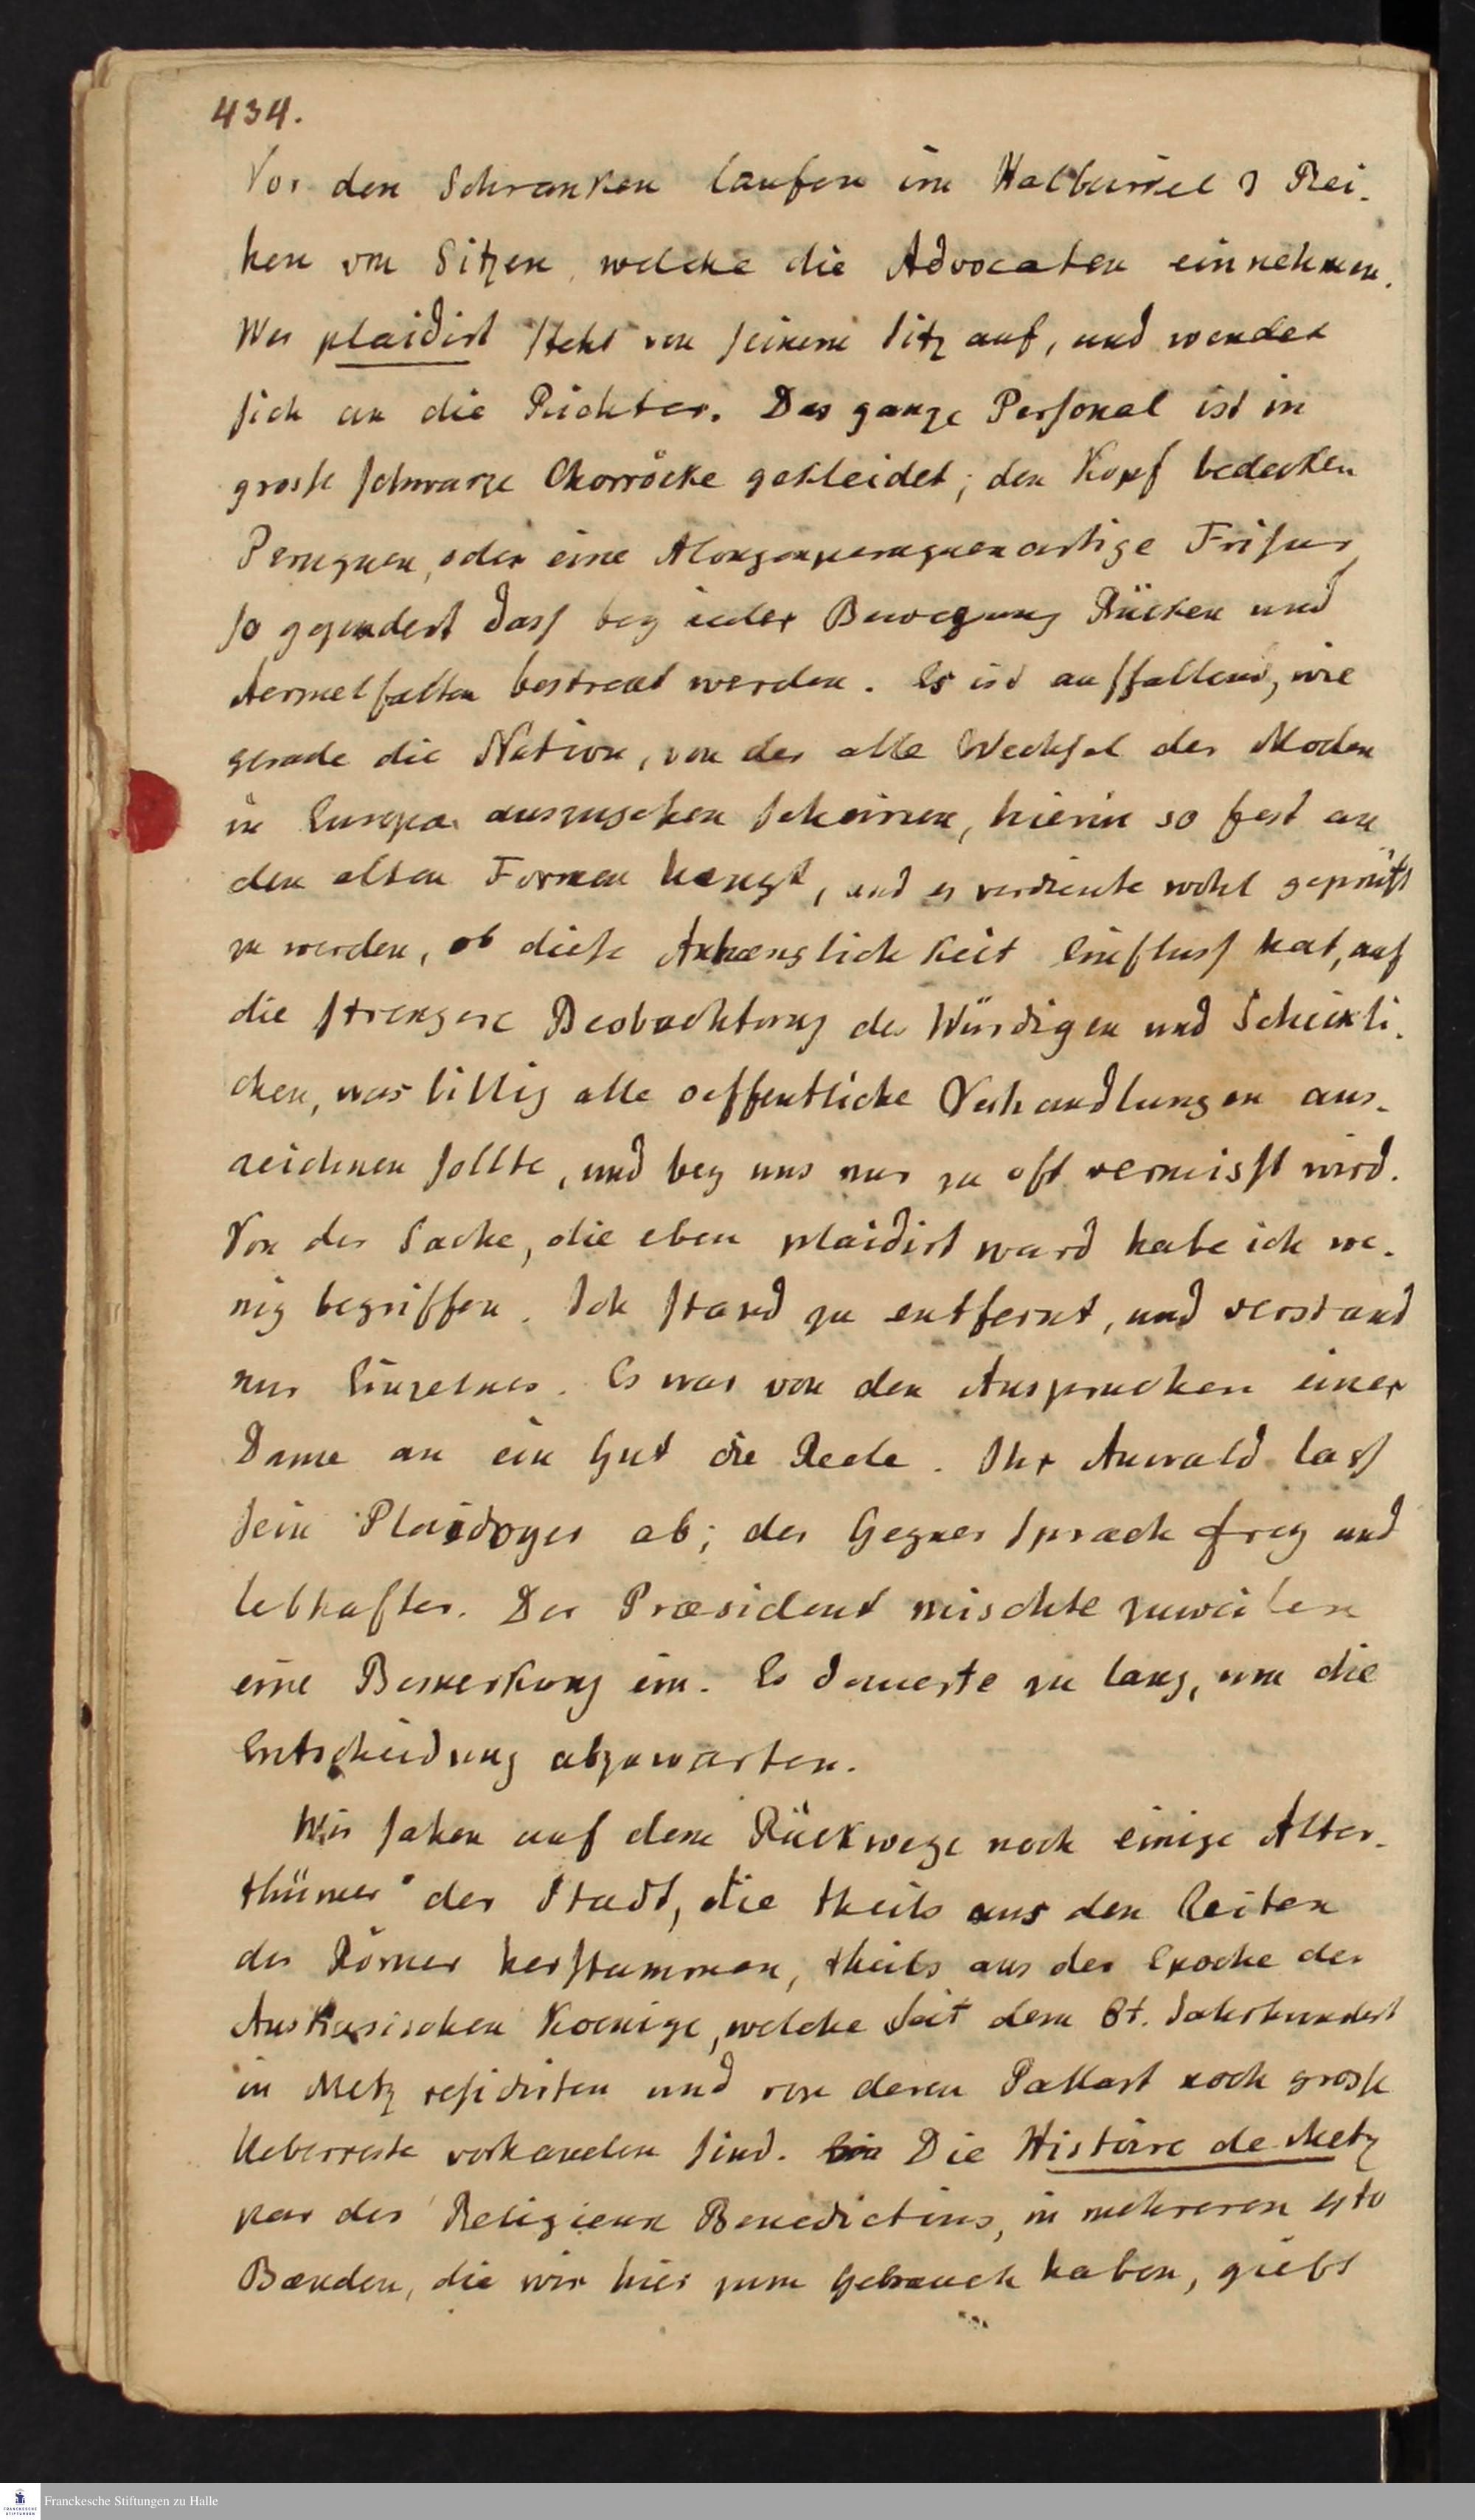 434.
Vor den Schranken laufen im Halbcirkel 3 Rei-
hen von Sitzen, welche die Advocaten einnehmen.
Wer plaidirt steht von seinem Sitz auf, und wendet
sich an die Richter. Das ganze Personal ist in
grosse schwarze Chorröcke gekleidet; den Kopf bedecken
Peruquen, oder eine Alongenperuquenartige Frisur,
so gepudert dass bey ieder Bewegung Rücken und
Aermelfalten bestreut werden. Es ist auffallend, wie
gerade die Nation, von der alle Wechsel der Moden
in Europa auszugehen scheinen, hierin so fest an
den alten Formen hængt, und es verdiente wohl geprüft
zu werden, ob diese Anhænglichkeit Einfluss hat, auf
die strengere Beobachtung des Würdigen und Schickli-
chen, was billig alle oeffentliche Verhandlungen aus-
zeichnen sollte, und bey uns nur zu oft vermisst wird.
Von der Sache, die eben plaidirt ward habe ich we-
nig begriffen. Ich stand zu entfernt, und verstand
nur Einzelnes. Es war von den Ansprüchen einer
Dame an ein Gut die Rede. Ihr Anwald lass
sein Plaidoyer ab; der Gegner sprach frey und
lebhafter. Der Præsident mischte zuweilen
eine Bemerkung ein. Es dauerte zu lang, um die
Entscheidung abzuwarten.
Wir sahen auf dem Rückwege noch einige Alter-
thümer der Stadt, die theils aus den Zeiten
der Römer herstammen, theils aus der Epoche der
Austrasischen Koenige, welche seit dem 6t. Jahrhundert
in Metz residirten und von deren Pallast noch grosse
Ueberreste vorhanden sind. Die Histoire de Metz
par des Religieux Benedictins, in mehreren 4to
Bænden, die wir hier zum Gebrauch haben, giebt
Franckesche Stiftungen zu Halle